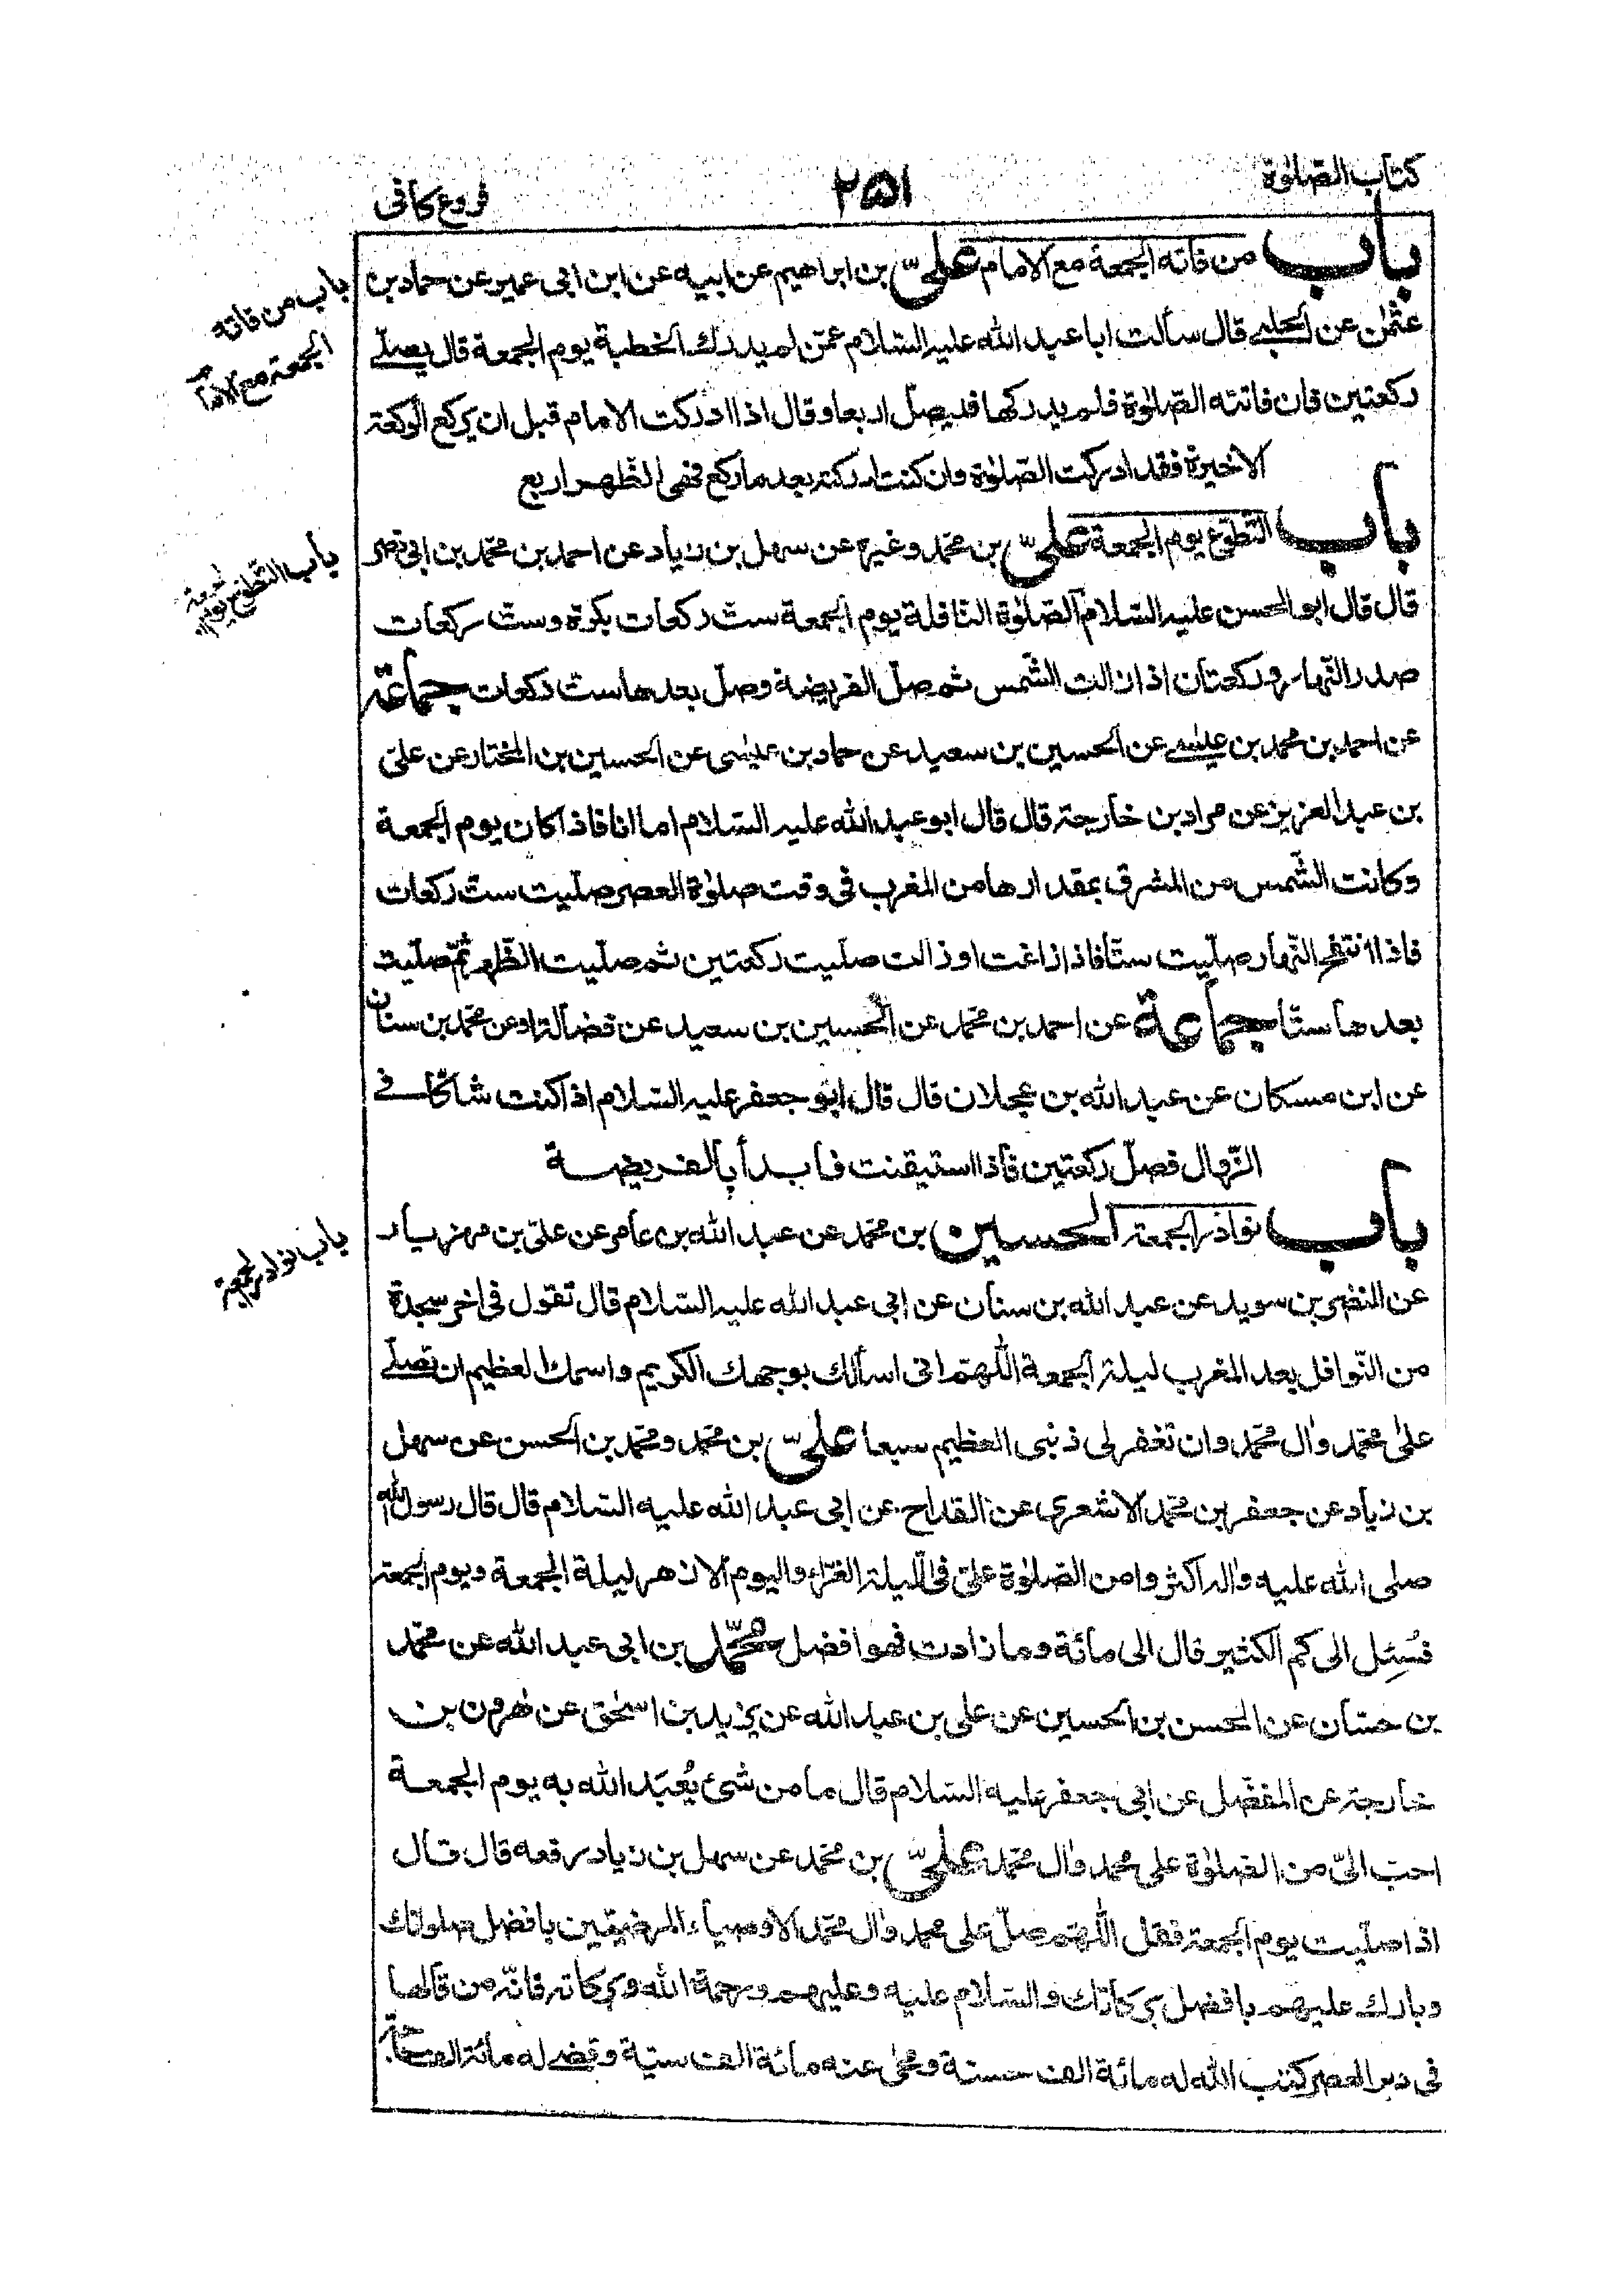 كتاب الصلوة
٢٥١
فروع كافى
باب من فاته الجمعة مع الامام علىّ بن ابراهيم عن ابيه عن ابن ابى عمير عن حماد بن
باب من فاته
الجمعة مع الامام
عثمٰن عن الحلبے قال سألت ابا عبد الله عليه السّلام عمّن لم يدرك الخطبة يوم الجمعة قال يصلّے
ركعتين فان فاتته الصّلوٰة فلم يدركها فليصلّ اربعا وقال اذا ادركت الامام قبل ان يركع الركعة
الاخيرة فقد ادركت الصّلوٰة وان كنت ادركته بعد ما ركع فهى الظّهر اربع
باب التطوّع يوم الجمعة علىّ بن محمد وغيره عن سهل بن زياد عن احمد بن محمّد بن ابى نصر
باب التطوع يوم الجمعة
قال قال ابو الحسن عليه السّلام الصّلوٰة النّافلة يوم الجمعة ستّ ركعات بكرة وستّ ركعات
صدر النّهار وركعتان اذا زالت الشّمس ثم صلّ الفريضة وصلّ بعدها ستّ ركعات جماعة
عن احمد بن محمد بن عيسے عن الحسين بن سعيد عن حماد بن عيسٰى عن الحسين بن المختار عن علىّ
بن عبد العزيز عن مراد بن خارجة قال قال ابو عبد الله عليه السّلام اما انا فاذا كان يوم الجمعة
وكانت الشّمس من المشرق بمقدارها من المغرب فى وقت صلوٰة العصر صلّيت ستّ ركعات
فاذا انتفخ النّهار صلّيت ستّا فاذا زاغت او زالت صلّيت ركعتين ثم صلّيت الظّهر ثمّ صلّيت
بعدها ستّا جماعة عن احمد بن محمّد عن الحسين بن سعيد عن فضالة او عن محمّد بن سنان
عن ابن مسكان عن عبد الله بن عجلان قال قال ابو جعفر عليه السّلام اذا كنت شاكّا فے
الزّوال فصلّ ركعتين فاذا استيقنت فابدأ بالفريضة
باب نوادر الجمعة الحسين بن محمّد عن عبد الله بن عامر عن علىّ بن مهزيار
باب نوادر الجمعة
عن النضر بن سويد عن عبد الله بن سنان عن ابى عبد الله عليه السّلام قال تقول فى اخر سجدة
من النّوافل بعد المغرب ليلة الجمعة اللّٰهمّ انى اسألك بوجهك الكريم واسمك العظيم ان تصلّے
علىٰ محمّد واٰل محمّد وان تغفر لى ذنبى العظيم سبعا علىّ بن محمّد ومحمّد بن الحسن عن سهل
بن زياد عن جعفر بن محمّد الاشعرى عن القداح عن ابى عبد الله عليه السّلام قال قال رسول الله
صلى الله عليه واٰله اكثروا من الصّلوٰة علىّ فى اللّيلة الغرّاء واليوم الازهر ليلة الجمعة ويوم الجمعة
فسُئِل الى كم الكثير قال الى مائة وما زادت فهو افضل محمّد بن ابى عبد الله عن محمّد
بن حسّان عن الحسن بن الحسين عن على بن عبد الله عن يزيد بن اسحٰق عن هٰرون بن
خارجة عن المفضّل عن ابى جعفر عليه السّلام قال ما من شئ يُعبَد الله به يوم الجمعة
احبّ الىّ من الصّلوٰة على محمد واٰل محمّد علىّ بن محمّد عن سهل بن زياد رفعه قال قال
اذا صلّيت يوم الجمعة فقل اللّٰهمّ صلّ على محمد واٰل محمّد الاوصياء المرضيّين بافضل صلواتك
وبارك عليهم بافضل بركاتك والسّلام عليه وعليهم ورحمة الله وبركاته فانّه من قالها
فى دبر العصر كتب الله له مائة الف حسنة ومحىٰ عنه مائة الف سيّئة وقضے له مائة الف حاجة